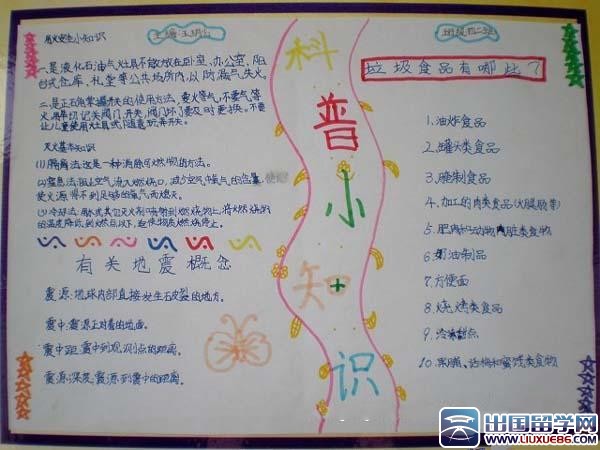 用火安全小知识
一是液化石油气灶具不能放在卧室、办公室、阳
台式仓库、礼堂等公共场所内，以防漏气失火。
二是正确掌握开关的使用方法，要火等气，不要气等
火，用毕切记关阀门、开关，阀门坏了要及时更换。不要
让儿童使用灶具或随意玩弄开关。
灭火基本知识
(1)隔离法：这是一种消除可燃物的方法。
(2)窒息法：阻止空气流入燃烧区，减少空气中氧气的含量，
使火源得不到足够的氧气而熄灭。
(3)冷却法：用水或其它灭火剂喷射到燃烧物上，将燃烧物的
温度降低到燃点以下，迫使物质燃烧停止。
有关地震概念
震源：地球内部直接发生破裂的地方。
震中：震源正对着的地面。
震中距：震中到观测点的距离。
震源深度：震源到震中的距离。
科普小知识
班级四二班
垃圾食品有哪些？
1.油炸食品
2.罐头类食品
3.腌制食品
4.加工的肉类食品(火腿肠等)
5.肥肉和动物内脏类食物
6.奶油制品
7.方便面
8.烧烤类食品
9.冷冻甜点
10.果脯、话梅和蜜饯类食物
出国留学网
WWW.LIUXUE86.COM